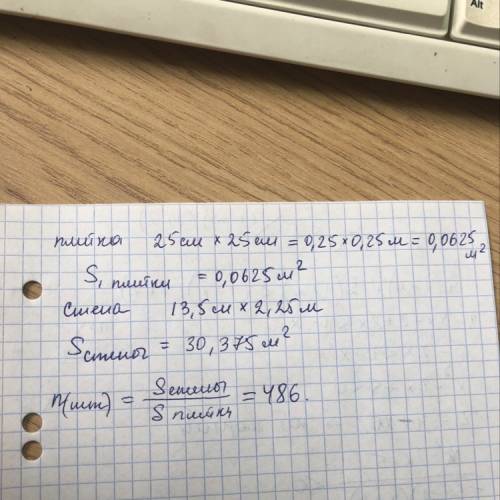 Alt
плитка 25см × 25см = 0,25 × 0,25м = 0,0625 м²
S₁ плитки = 0,0625м²
стена 13,5см × 2,25м
Sстены = 30,375м²
n(шт) = Sстены / S плитки = 486.